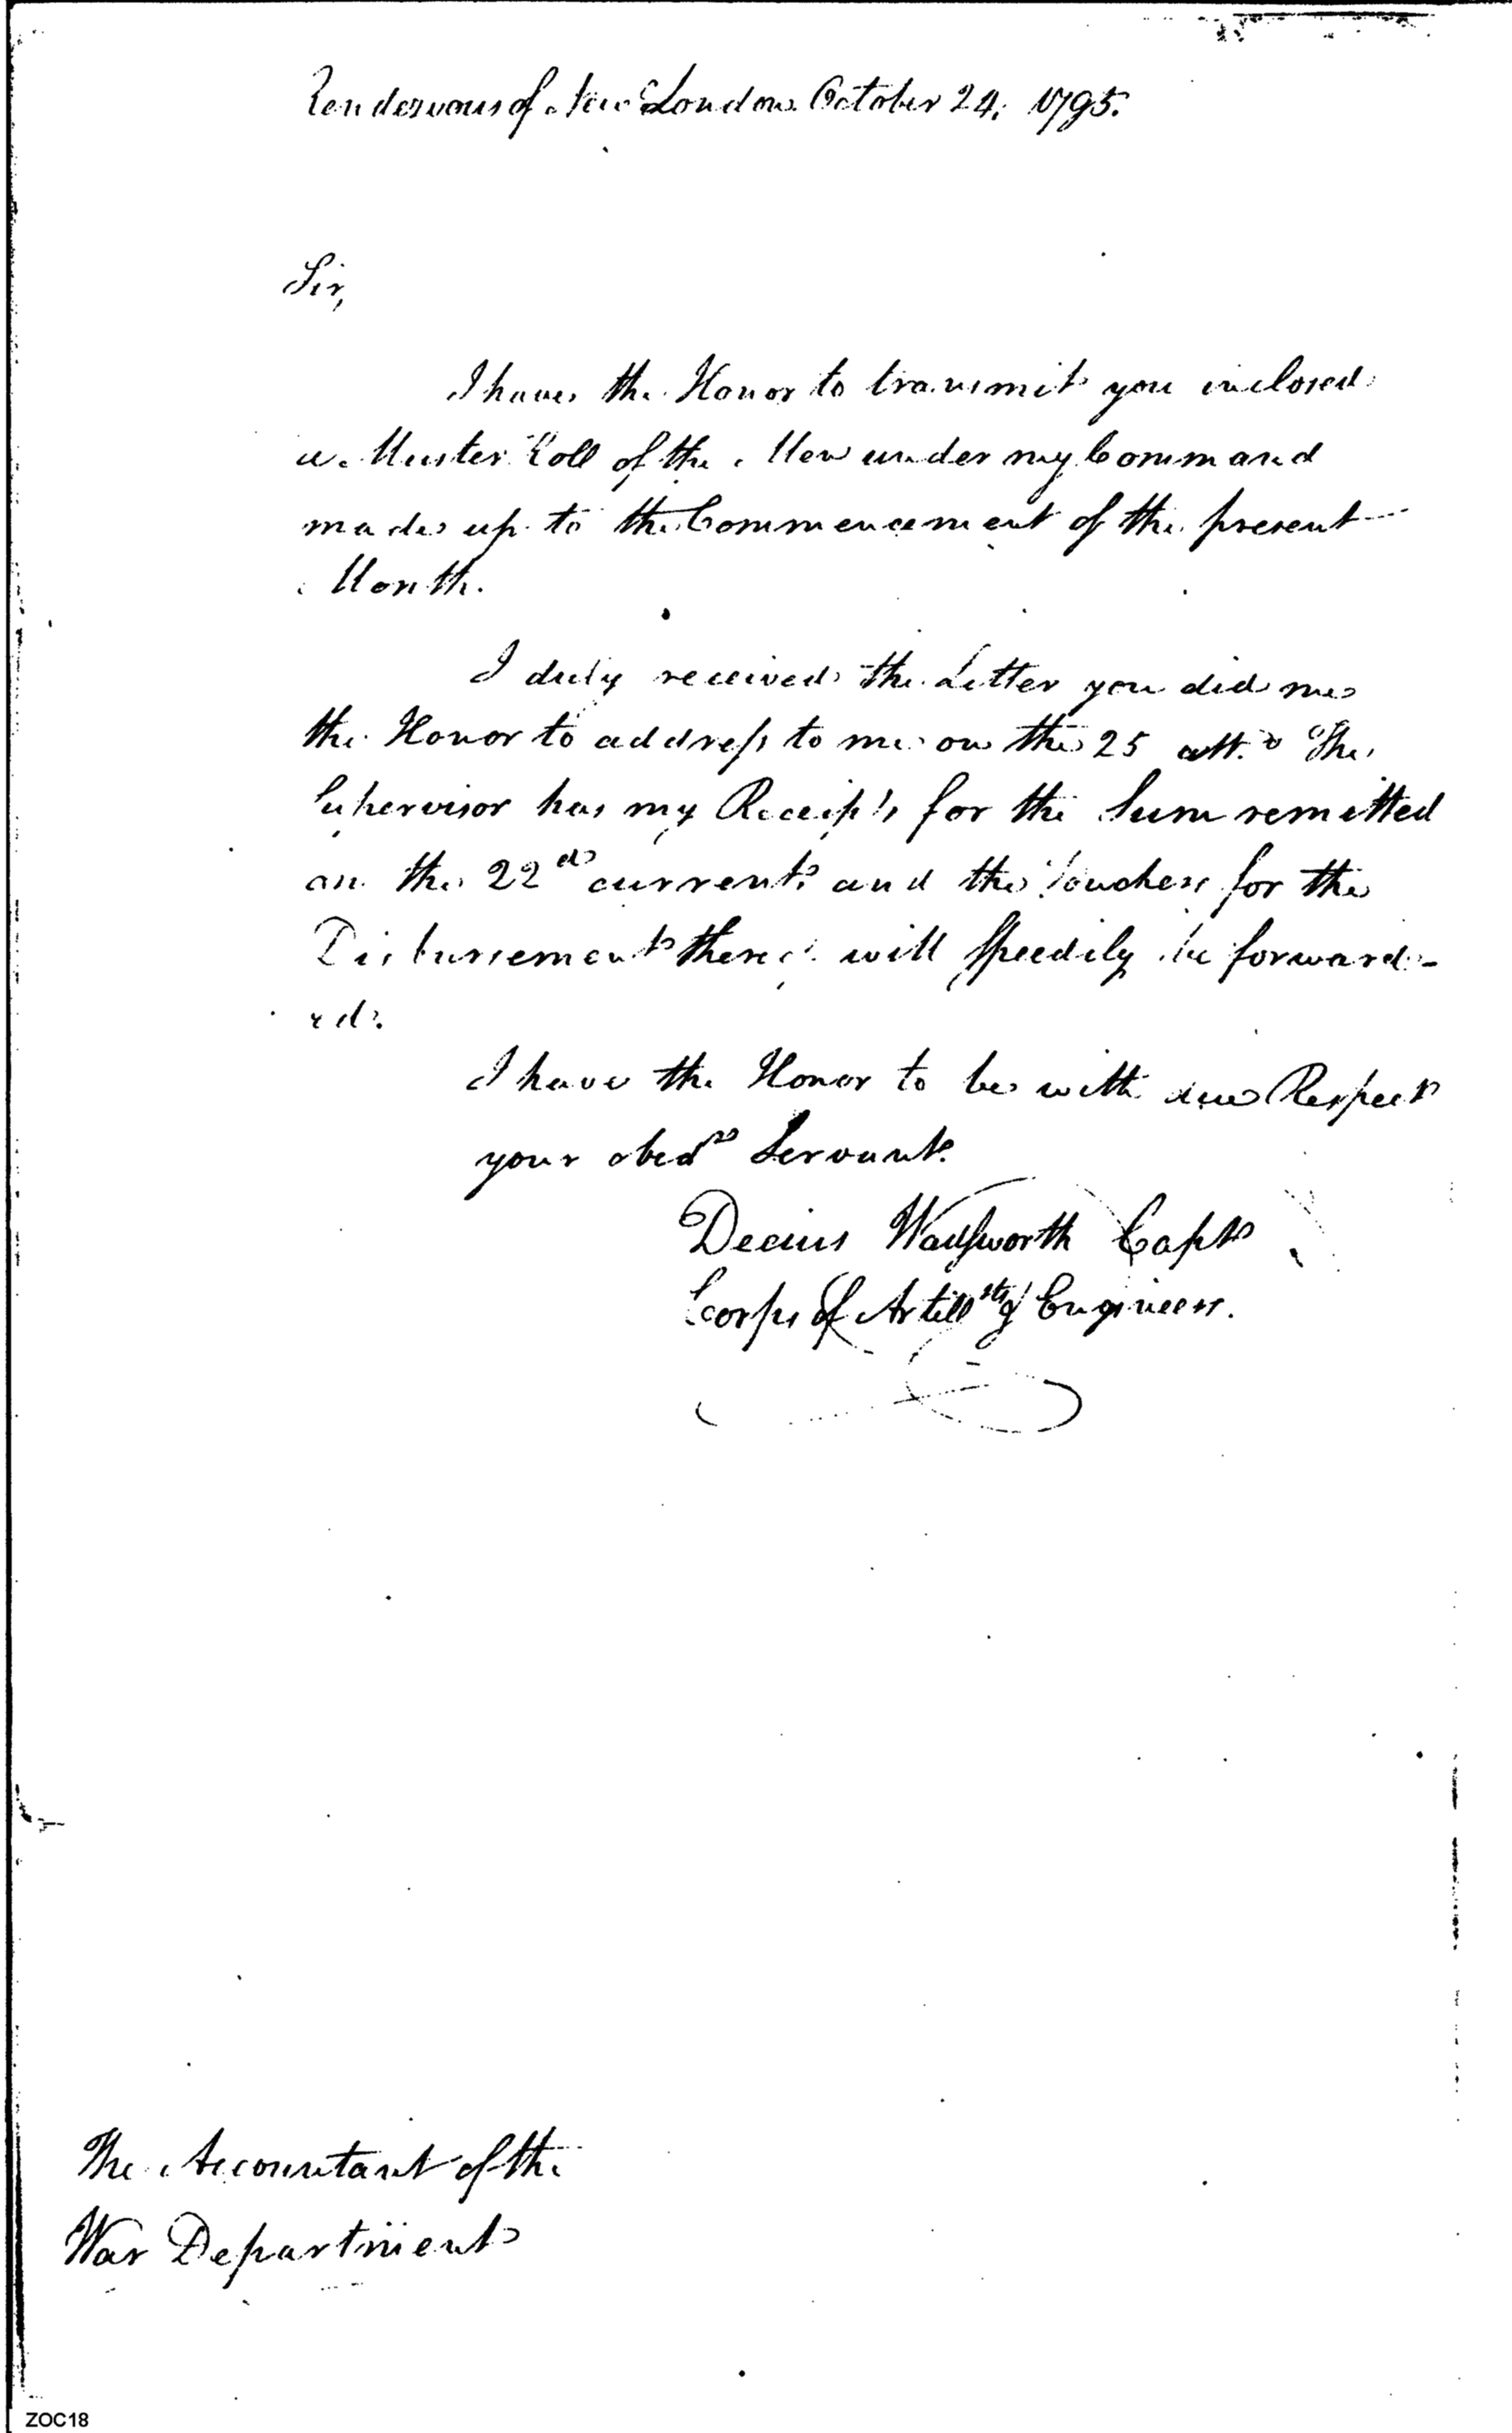 Rendezvous of New London October 24. 1795.
Sir,
I have the Honor to transmit you inclosed
a Muster Roll of the Men under my Command
made up to the Commencement of the present
Month.
I duly received the Letter you did me
the Honor to address to me on the 25 ult.o The
Supervisor has my Receipts for the Sum remitted
on the 22d current and the Vouchers for the
Disbursement thereof will speedily be forward-
ed.
I have the Honor to be with due Respect
your obedt Servant
Decius Wadsworth Capt
Corps of Artillsts & Engineers.
The Accountant of the
War Department
ZOC18